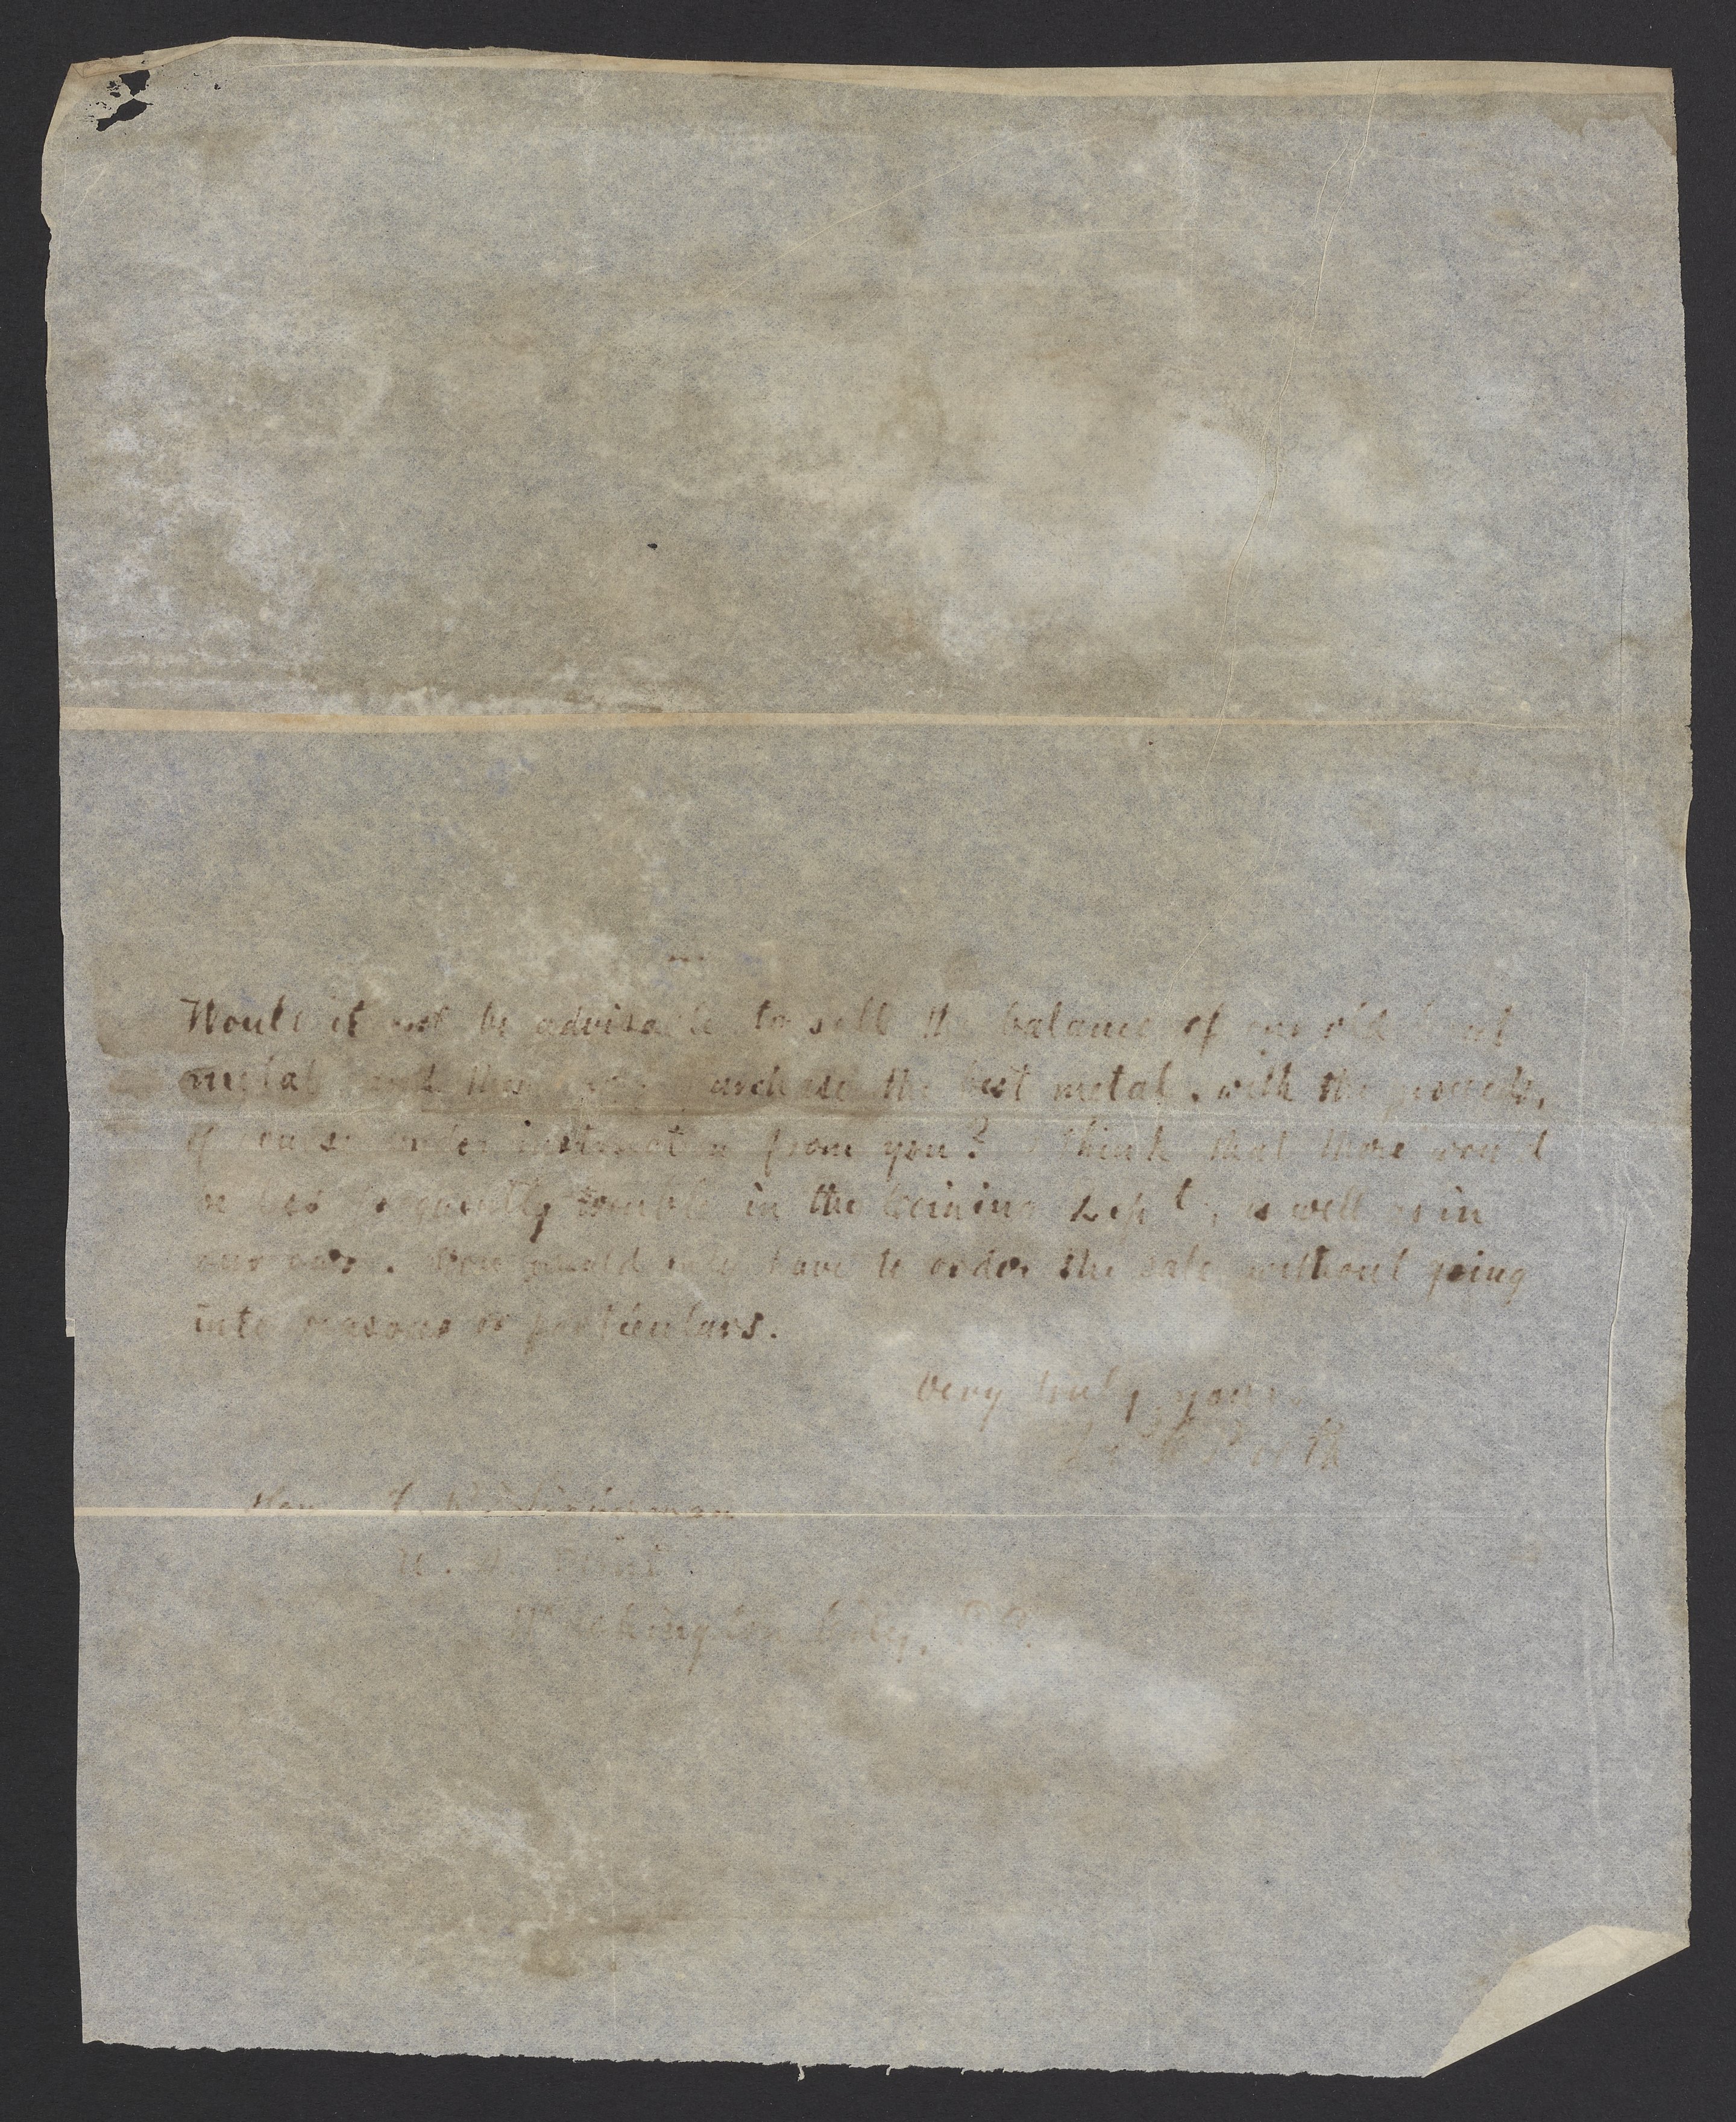 Would it not be advisable to sell the balance of our old
metal and then purchase the best metal, with the proceeds,
if under instruction from you? I think that there would
be less frequently trouble in the Coining Dept, as well as in
our own. You would only have to order the sale, without going
into reasons or particulars.
Very truly yours
Hon.
U. S. Mint
Washington City, D.C.